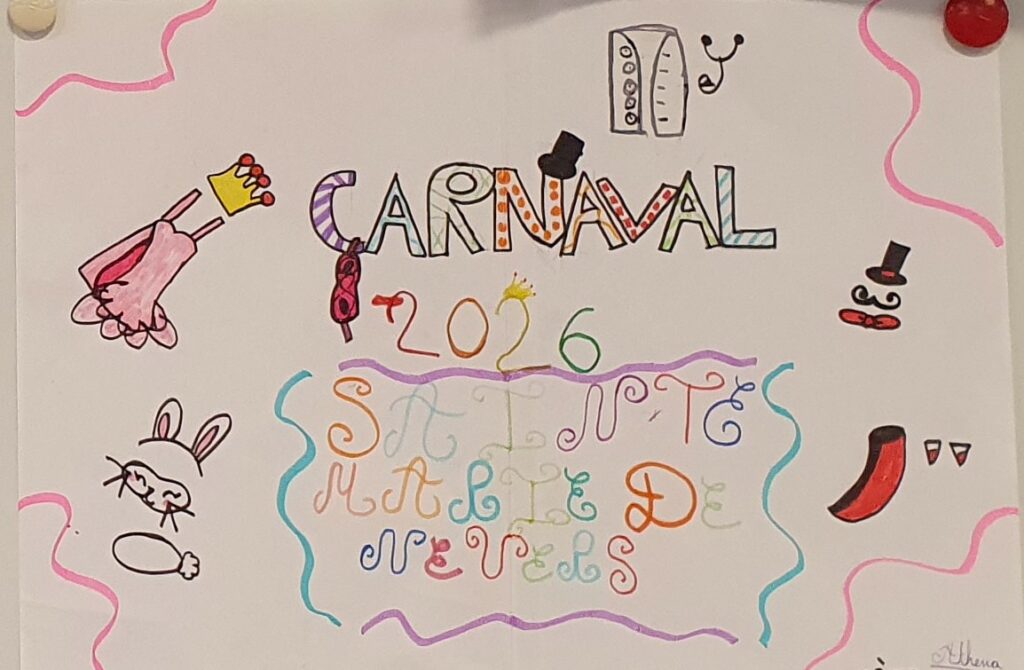 CARNAVAL
2026
SAINTE
MARIE DE
NEVERS
Athena